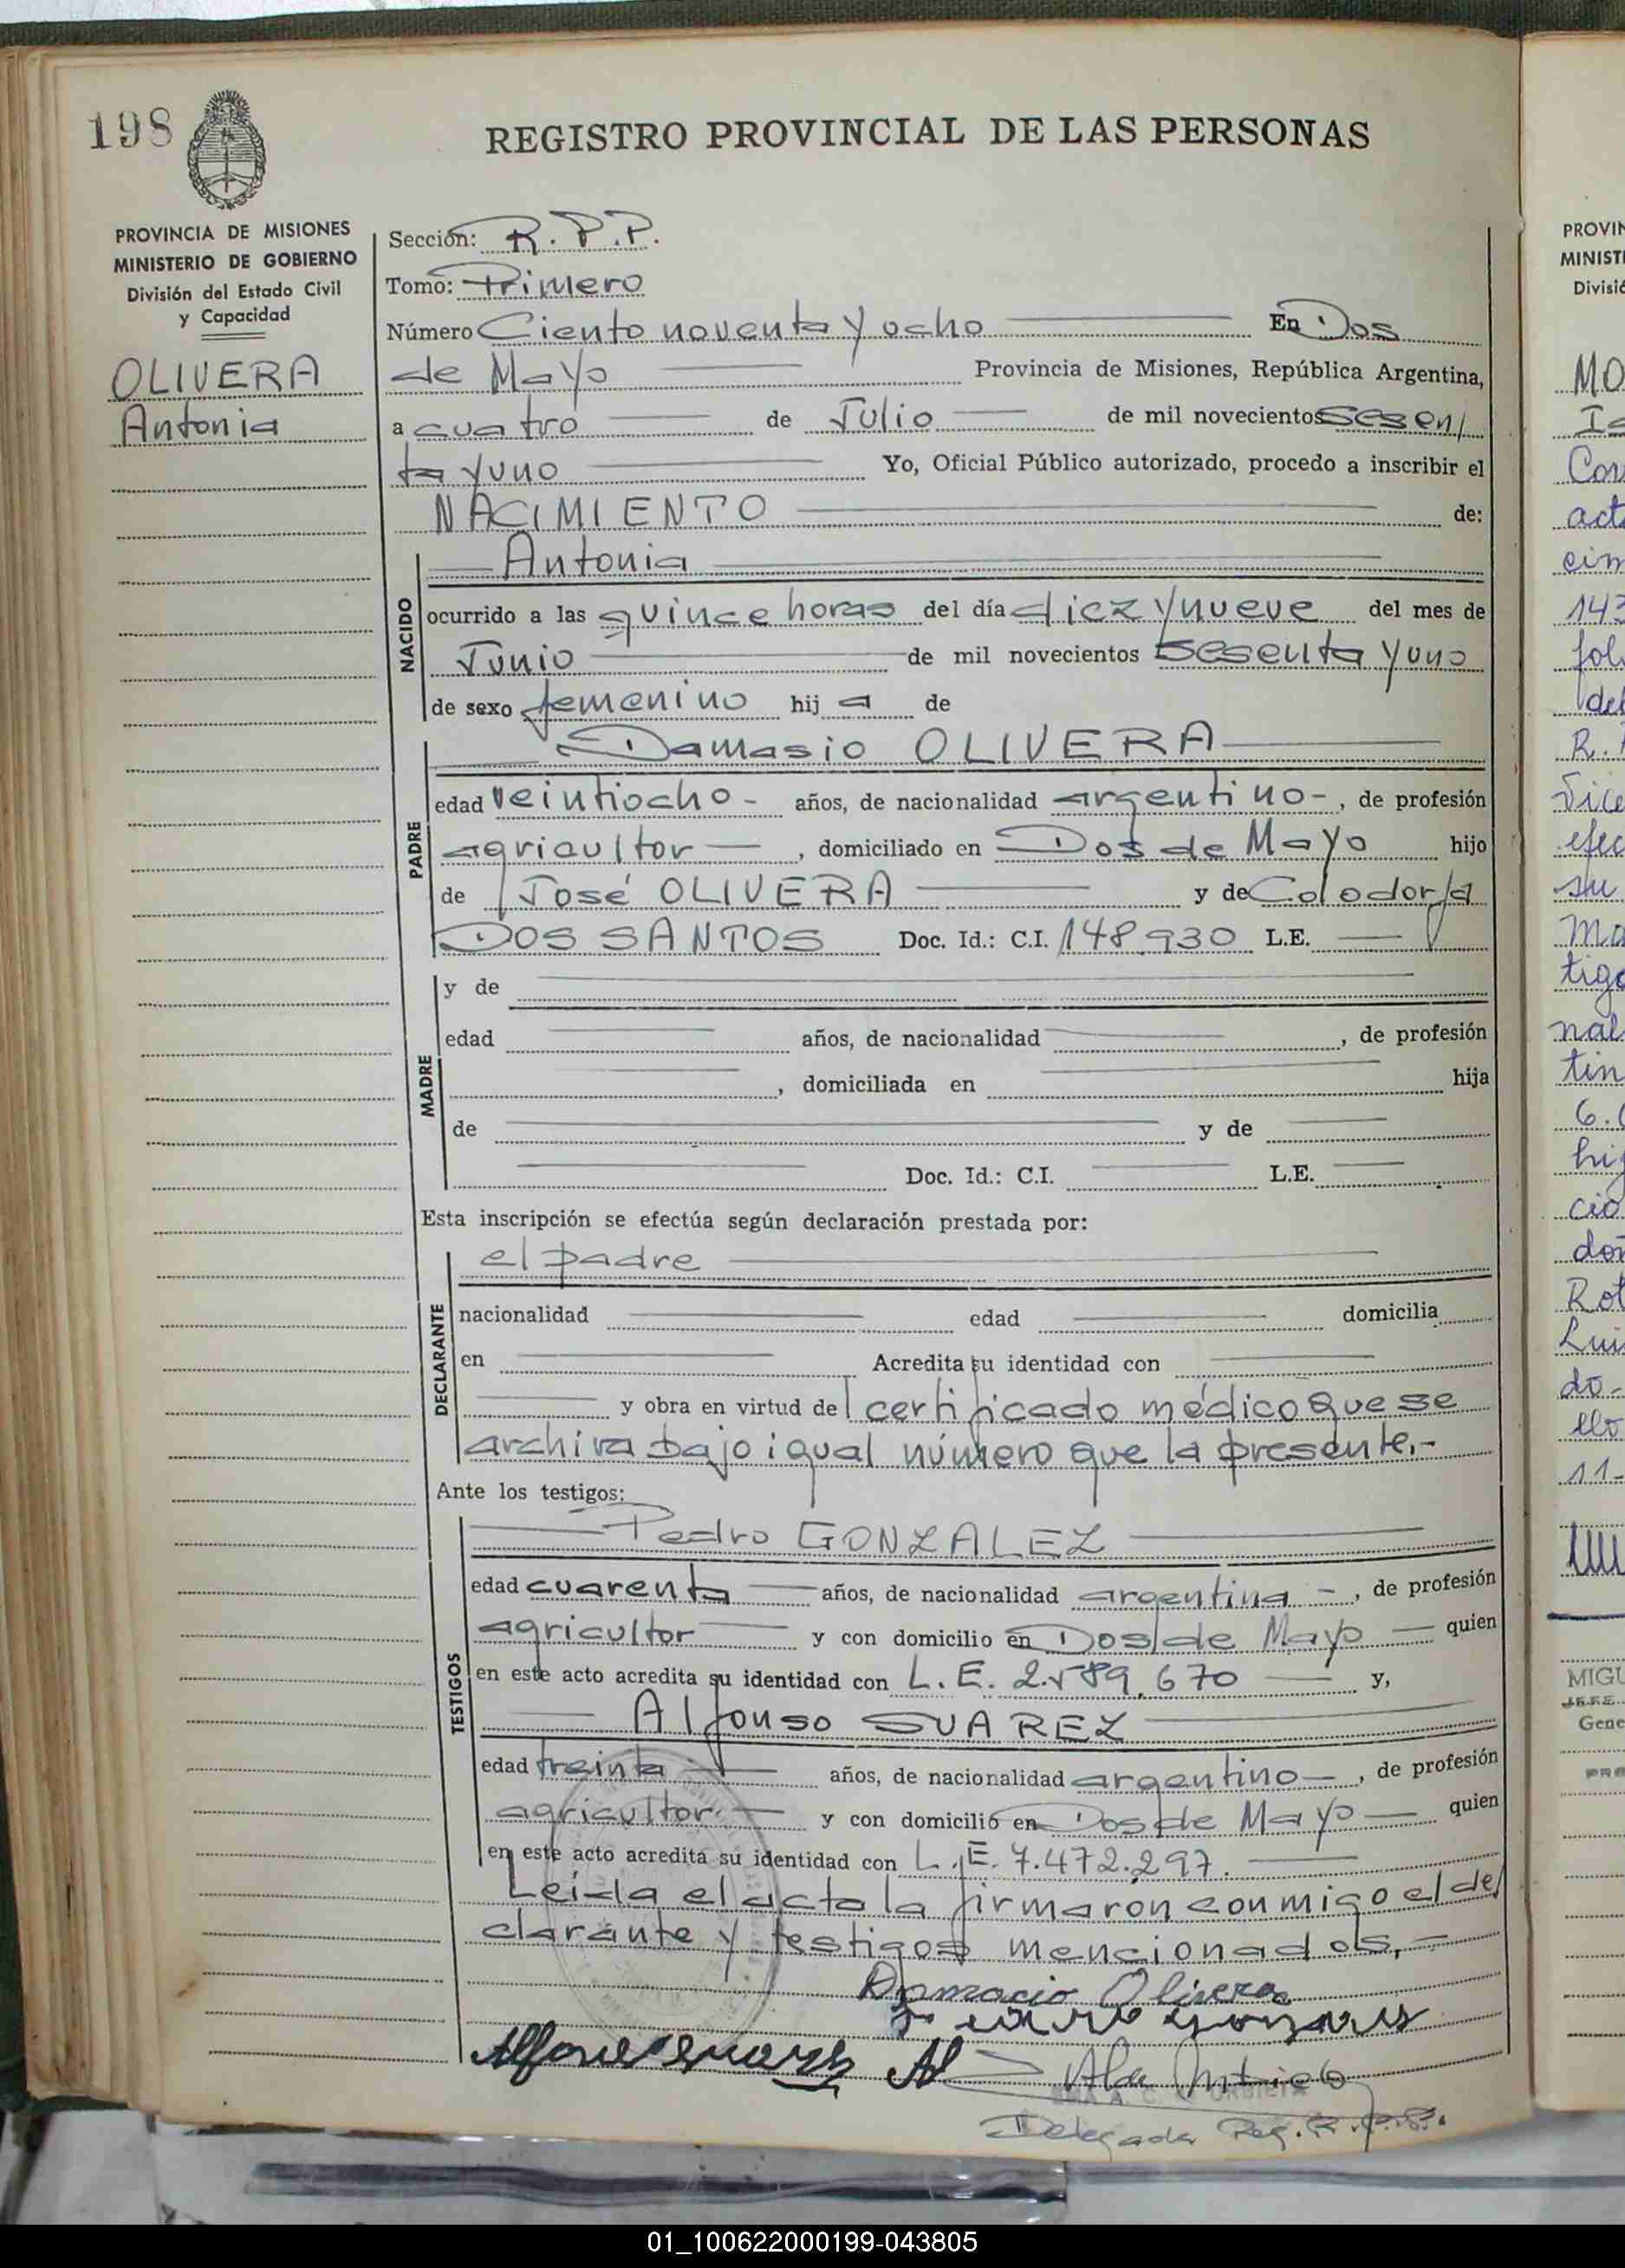 198
REGISTRO PROVINCIAL DE LAS PERSONAS
PROVINCIA DE MISIONES
MINISTERIO DE GOBIERNO
División del Estado Civil
y Capacidad
OLIVERA
Antonia
Sección: R.P.P.
Tomo: Primero
Número Ciento noventa y ocho En Dos
de Mayo Provincia de Misiones, República Argentina,
a cuatro de Julio de mil novecientos sesen/
ta y uno Yo, Oficial Público autorizado, procedo a inscribir el
NACIMIENTO de:
NACIDO
Antonia
ocurrido a las quince horas del día diez y nueve del mes de
Junio de mil novecientos sesenta y uno
de sexo femenino hij a de
PADRE
Damasio OLIVERA
edad veintiocho - años, de nacionalidad argentino-, de profesión
agricultor — , domiciliado en Dos de Mayo hijo
de José OLIVERA y de
DOS SANTOS Doc. Id.: C.I. 148.930 L.E. —
MADRE
y de
edad años, de nacionalidad , de profesión
, domiciliada en hija
de y de
Doc. Id.: C.I. L.E.
Esta inscripción se efectúa según declaración prestada por:
DECLARANTE
el padre
nacionalidad edad domicilia
en Acredita su identidad con
y obra en virtud del certificado médico que se
archiva bajo igual número que la presente.-
Ante los testigos:
TESTIGOS
Pedro GONZALEZ
edad cuarenta — años, de nacionalidad argentina -, de profesión
agricultor y con domicilio en Dos de Mayo — quien
en este acto acredita su identidad con L.E. 2.589.670 — y,
Alfonso SUAREZ
edad treinta — años, de nacionalidad argentino-, de profesión
agricultor.- y con domicilio en Dos de Mayo — quien
en este acto acredita su identidad con L.E. 7.472.297.
Leída el acta la firmarón conmigo el de/
clarante y testigos mencionados.-
Damacio Olivera
Delegada Reg. R.P.P.
PROVIN
MINISTE
Divisió
MO
Con
acta
cim
143
fol
del
R.
Vice
efec
su
Ma
tigo
nal
tin
6.
hi
cio
don
Rot
Lui
do-
11-
MIGU
JEFE
Gene
01_100622000199-043805